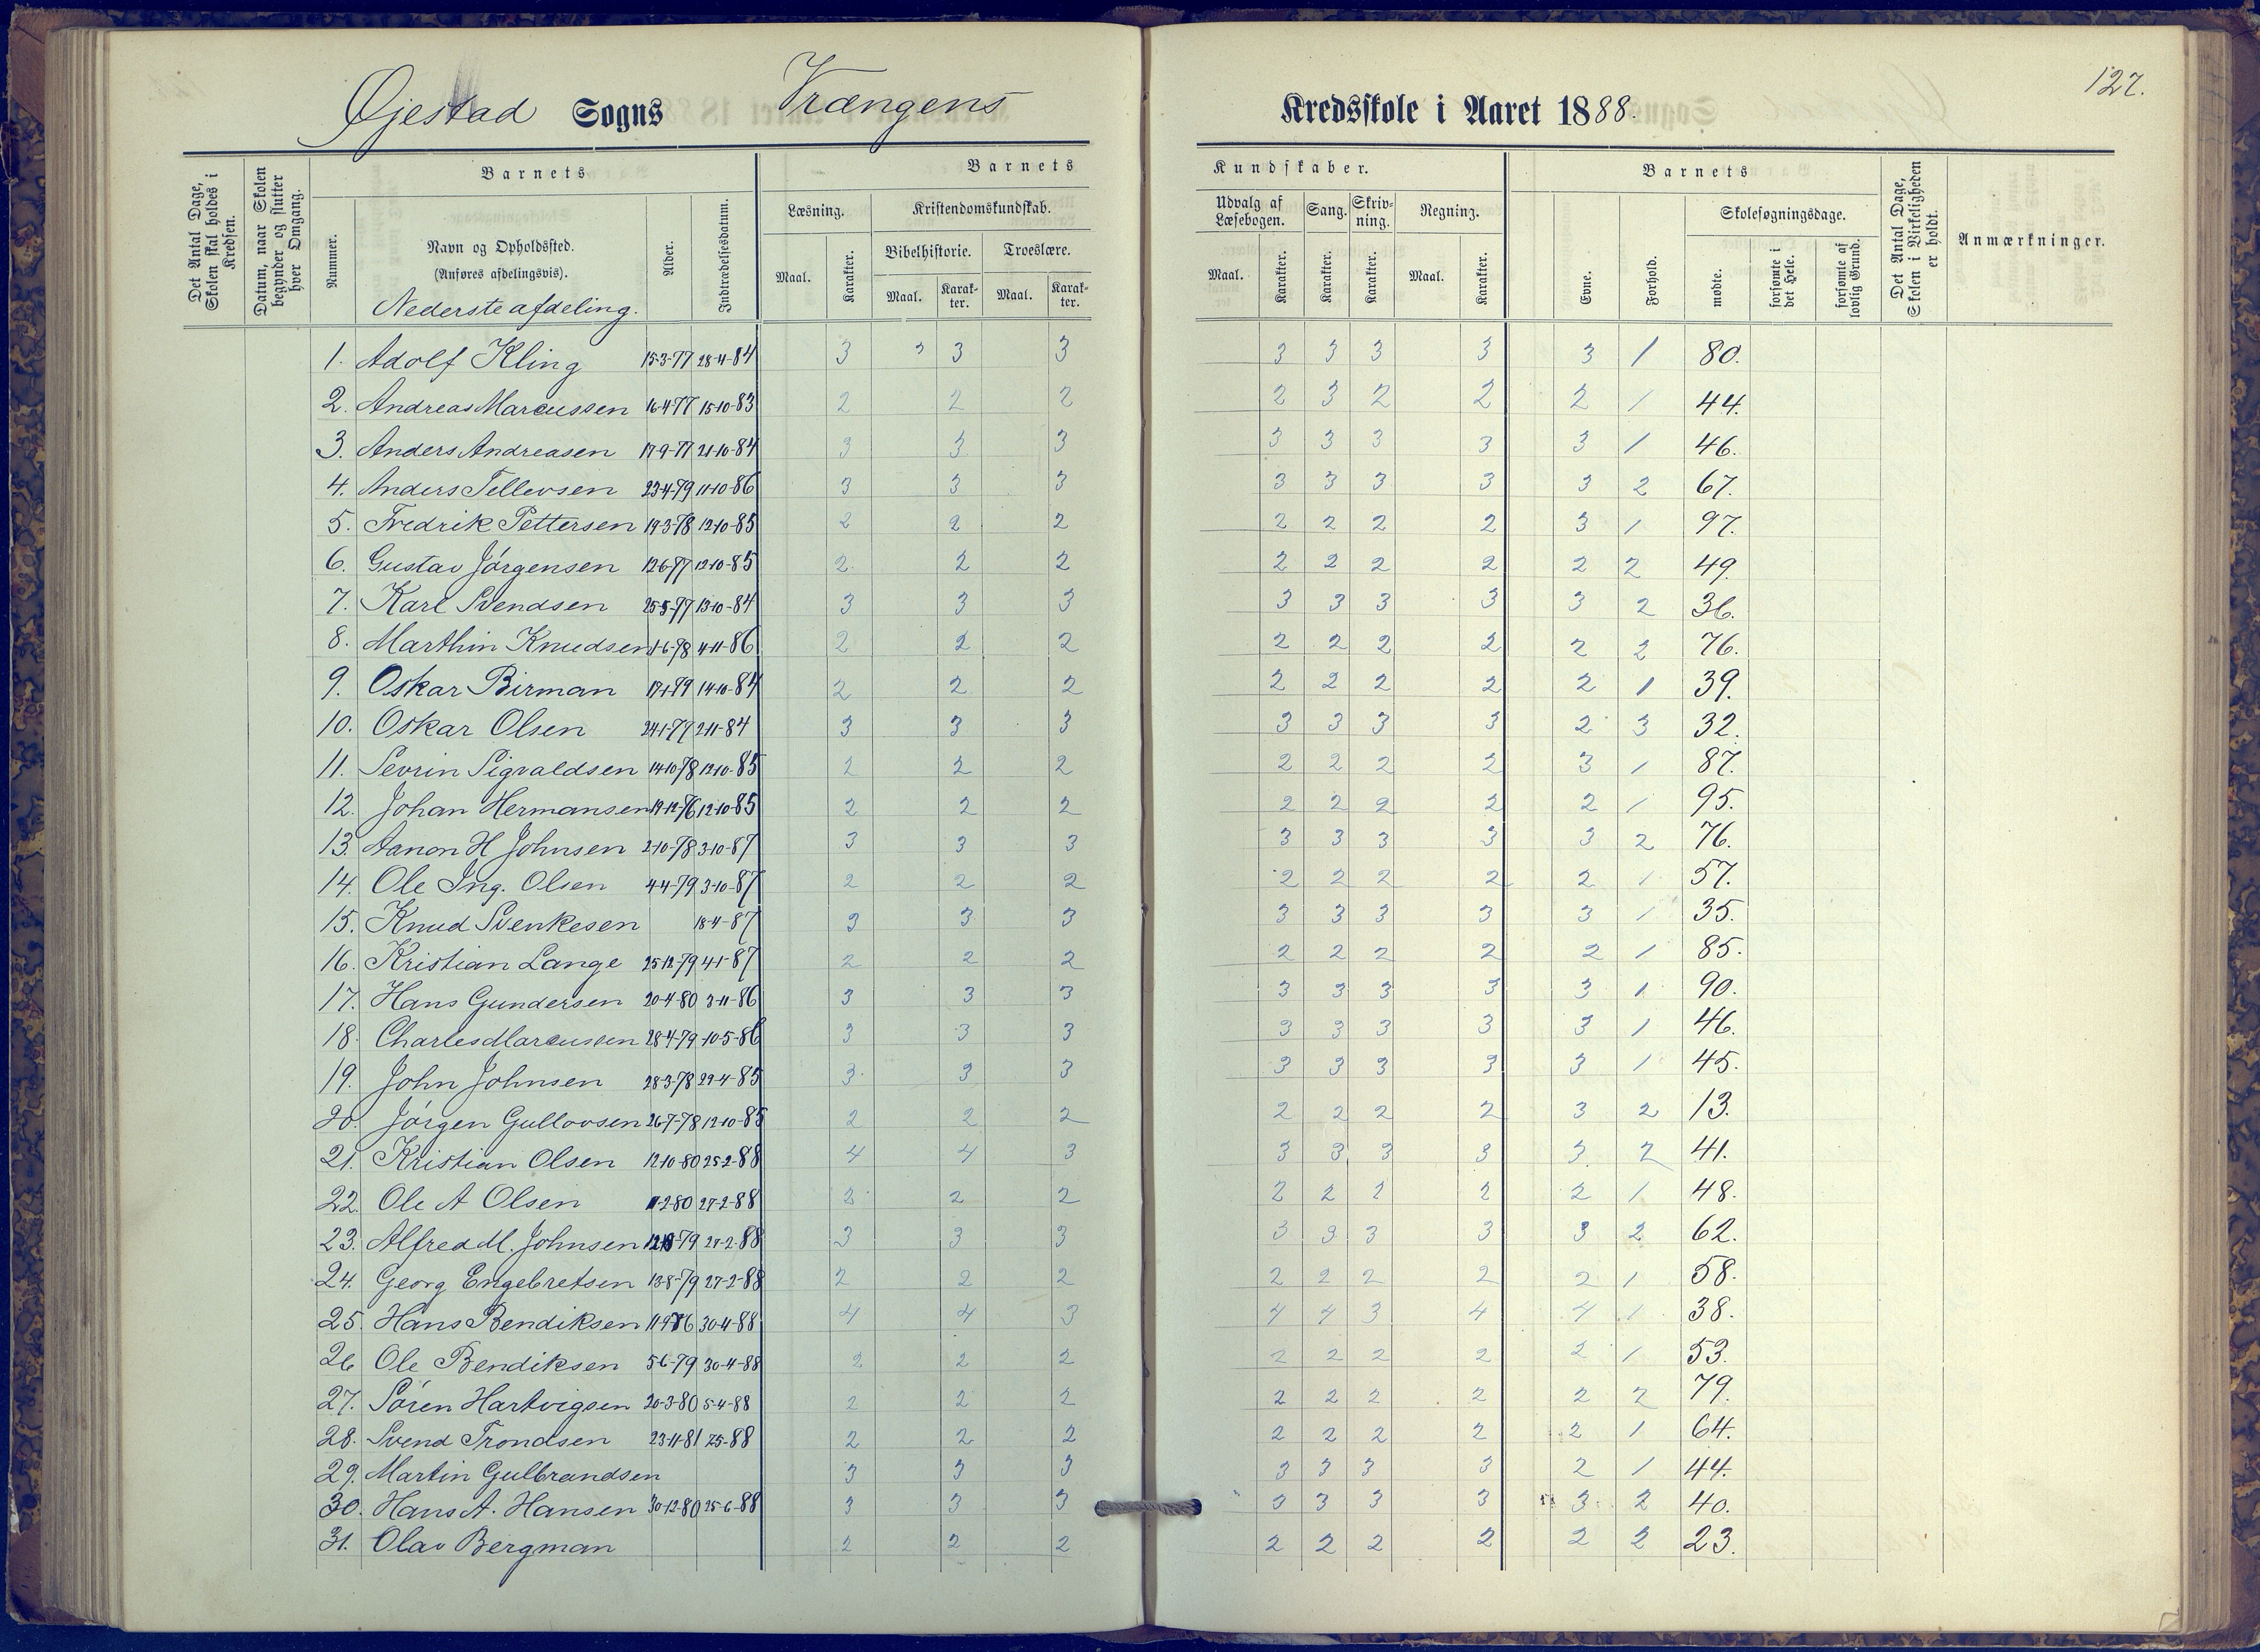 127.
Øjestad Sogns Vrængens Kredsskole i Aaret 1888.
Det Antal Dage, Skolen skal holdes i Kredsen.
Datum, naar Skolen begynder og slutter hver Omgang.
Barnets
Nummer.
Navn og Opholdssted.
(Anføres afdelingsvis).
Nederste afdeling.
Alder.
Indtrædelsesdatum.
Barnets Kundskaber.
Læsning.
Maal. Karakter.
Kristendomskundskab.
Bibelhistorie. Troeslære.
Maal. Karakter. Maal. Karakter.
Udvalg af Læsebogen.
Maal. Karakter.
Sang.
Karakter.
Skrivning.
Karakter.
Regning.
Maal. Karakter.
Barnets
Evne. Forhold.
Skolesøgningsdage.
mødte. forsømte i det Hele. forsømte af lovlig Grund.
Det Antal Dage, Skolen i Virkeligheden er holdt.
Anmærkninger.
1. Adolf Kling 15-3-77 28-4-84 3 3 3 3 3 3 3 3 3 1 80.
2. Andreas Marcussen 16-4-77 15-10-83 2 2 2 2 3 2 2 2 1 44.
3. Anders Andreasen 17-9-77 21-10-84 3 3 3 3 3 3 3 3 1 46.
4. Anders Tellevsen 23-4-79 11-10-86 3 3 3 3 3 3 3 3 2 67.
5. Fredrik Pettersen 19-3-78 12-10-85 2 2 2 2 2 2 2 3 1 97.
6. Gustav Jörgensen 12-6-77 12-10-85 2 2 2 2 2 2 2 2 2 49.
7. Karl Svendsen 25-5-77 13-10-84 3 3 3 3 3 3 3 3 2 36.
8. Marthin Knudsen 1-6-78 4-11-86 2 2 2 2 2 2 2 2 2 76.
9. Oskar Birman 17-1-79 14-10-84 2 2 2 2 2 2 2 2 1 39.
10. Oskar Olsen 24-1-77 2-11-84 3 3 3 3 3 3 3 2 3 32.
11. Sevrin Sigvaldsen 14-10-78 12-10-85 2 2 2 2 2 2 2 3 1 87.
12. Johan Hermansen 19-12-76 12-10-85 2 2 2 2 2 2 2 2 1 95.
13. Aanon H Johnsen 2-10-78 3-10-87 3 3 3 3 3 3 3 3 2 76.
14. Ole Ing. Olsen 4-4-79 3-10-87 2 2 2 2 2 2 2 2 1 57.
15. Knud Svenkesen 18-4-87 3 3 3 3 3 3 3 3 1 35.
16. Kristian Lange 25-12-79 4-1-87 2 2 2 2 2 2 2 2 1 85.
17. Hans Gundersen 20-4-80 3-11-86 3 3 3 3 3 3 3 3 1 90.
18. Charles Marcussen 28-4-79 10-5-86 3 3 3 3 3 3 3 3 1 46.
19. John Johnsen 28-3-78 29-4-85 3 3 3 3 3 3 3 3 1 45.
20. Jörgen Gullovsen 26-7-78 12-10-85 2 2 2 2 2 2 2 3 2 13.
21. Kristian Olsen 12-10-80 25-2-88 4 4 3 3 3 3 3 3 2 41.
22. Ole A Olsen 11-2-80 27-2-88 2 2 2 2 2 2 2 2 1 48.
23. Alfred M. Johnsen 79 27-2-88 3 3 3 3 3 3 3 3 2 62.
24. Georg Engebretsen 13-8-79 27-2-88 2 2 2 2 2 2 2 2 1 58.
25. Hans Bendiksen 11-9-76 30-4-88 4 4 3 4 4 3 4 4 1 38.
26 Ole Bendiksen 5-6-79 30-4-88 2 2 2 2 2 2 2 2 1 53.
27. Sören Hartvigsen 20-3-80 5-4-88 2 2 2 2 2 2 2 2 2 79.
28. Svend Trondsen 23-11-81 7-5-88 2 2 2 2 2 2 2 2 1 64.
29. Martin Gulbrandsen 3 3 3 3 3 3 3 2 1 44.
30. Hans A. Hansen 30-12-80 25-6-88 3 3 3 3 3 3 3 3 2 40.
31. Olav Bergman 2 2 2 2 2 2 2 2 2 23.